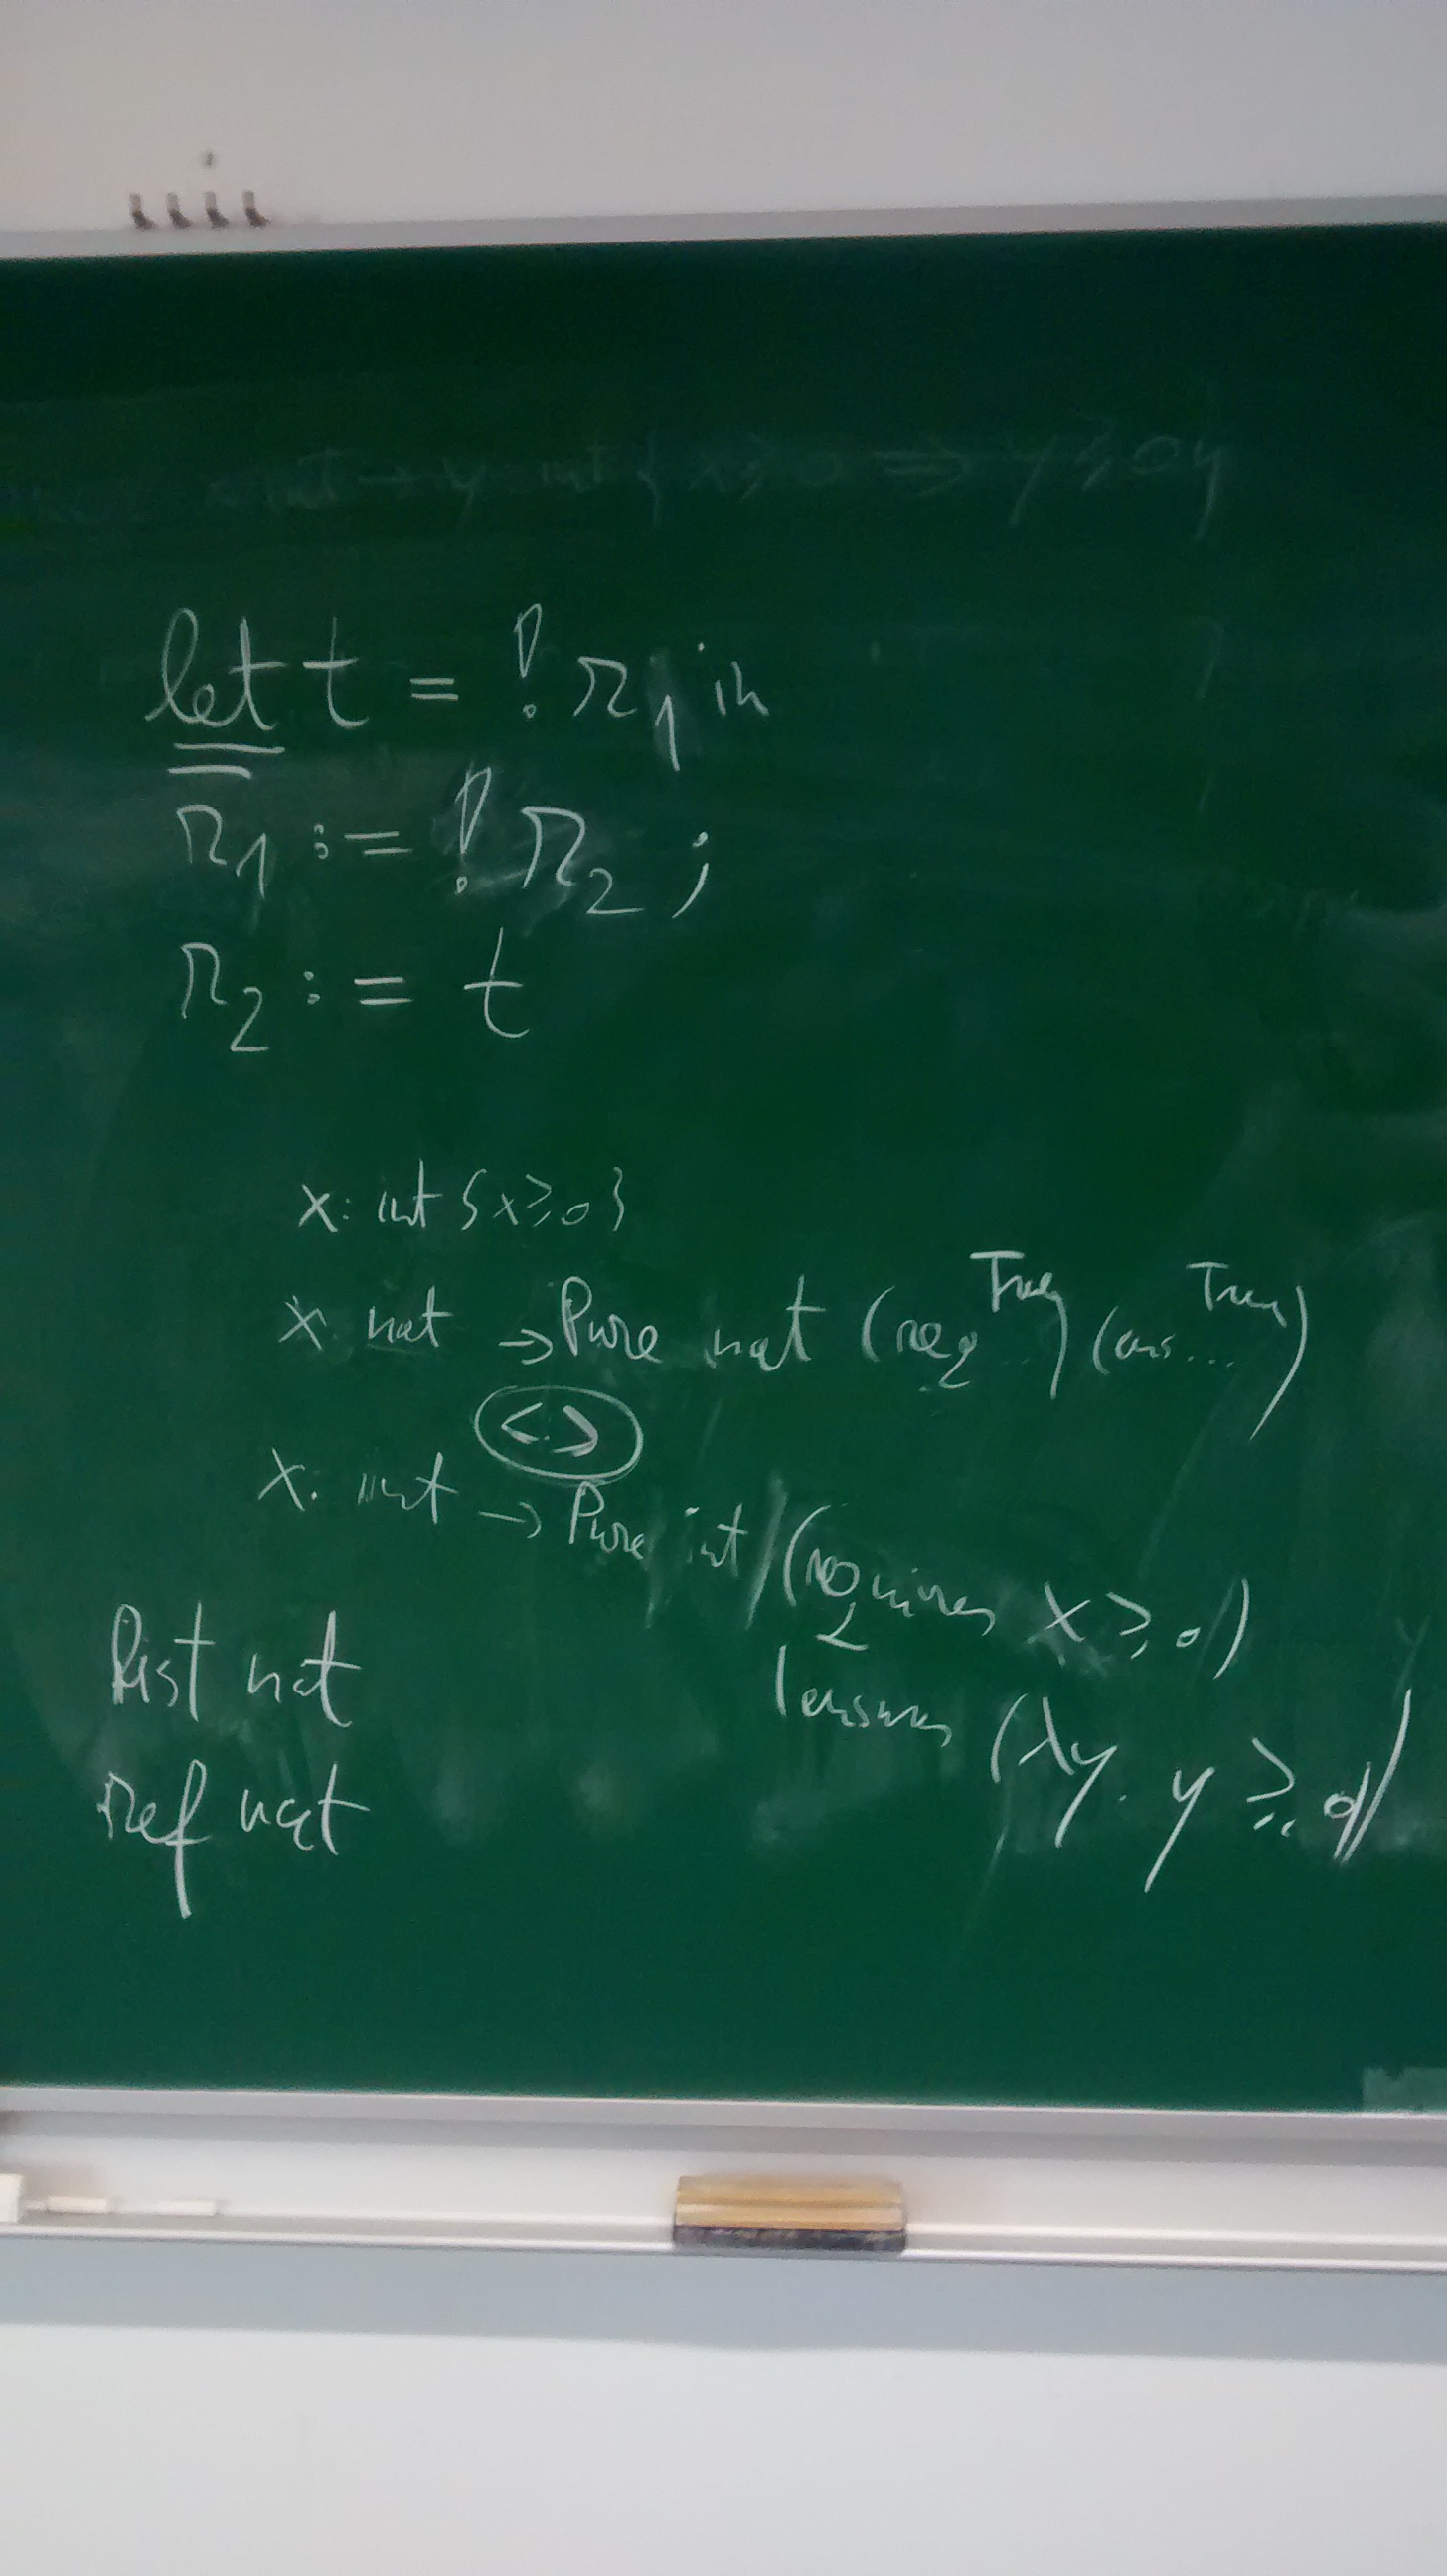 x int → y int { x ≥ 0 ⇒ y ≥ 0 }
let t = ! r1 in
r1 := ! r2 ;
r2 := t
x: int {x ≥ 0}
True True
x nat → Pure nat (req ...) (ens ...)
<.>
x: int → Pure int (requires x ≥ 0)
(ensures (λy. y ≥ 0))
list nat
ref nat